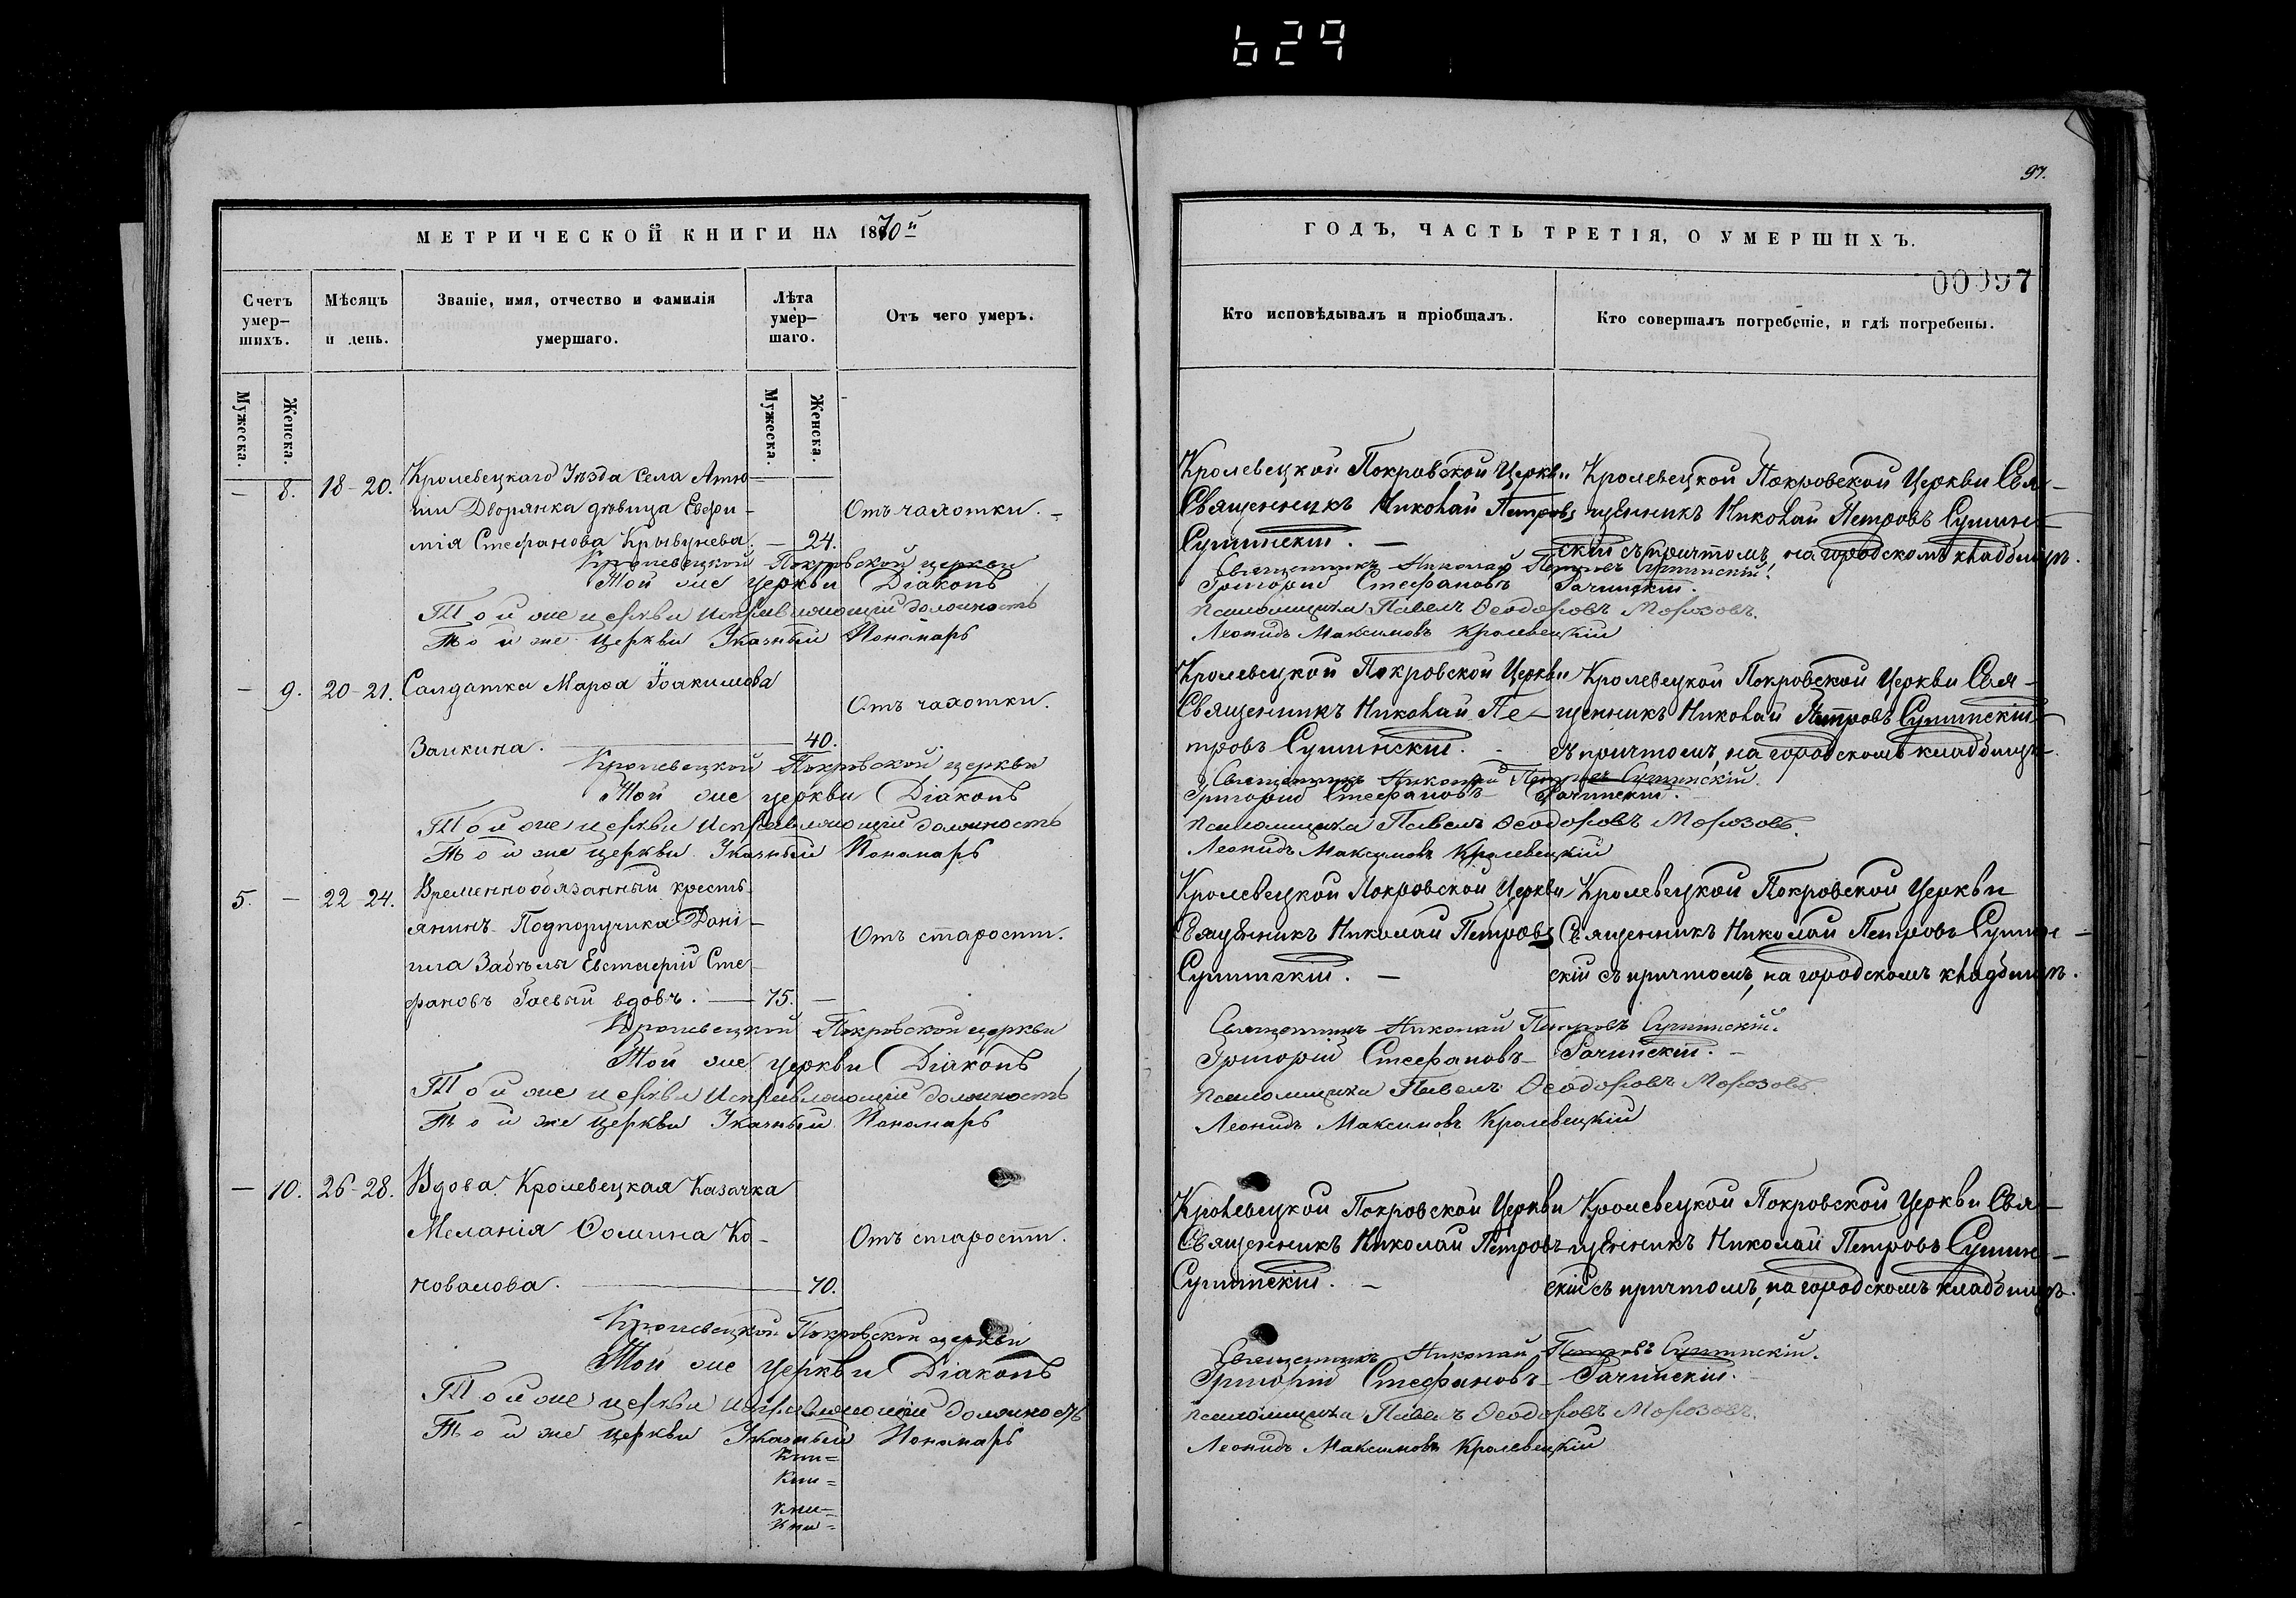 629
97.
МЕТРИЧЕСКОЙ КНИГИ НА 1870й
Счетъ умер-
шихъ.
Мѣсяцъ
и день.
Званіе, имя, отчество и фамилія
умершаго.
Лѣта
умер-
шаго.
Отъ чего умеръ.
Мужеска.
Женска.
Мужеска.
Женска.
— 8. 18-20. Кролевецкаго Уѣзда Села
Дворянка дѣвица Евфи-
мія Стефанова — 24.
Отъ чахотки.
Кролевецкой Покровской церкви
Той же церкви Діаконъ
Той же церкви исправляющій должность
Той же церкви Указный Пономарь
— 9. 20-21. Салдатка Марѳа Іоакимова
Заикина. 40.
Отъ чахотки.
Кролевецкой Покровской церкви
Той же церкви Діаконъ
Той же церкви исправляющій должность
Той же церкви Указный Пономарь
5. — 22-24. Временнообязанный кресть-
янинъ Подпоручика Дани-
ила Забѣлы Евстафій Сте-
фановъ Гаевый вдовъ. — 75. —
Отъ старости.
Кролевецкой Покровской церкви
Той же церкви Діаконъ
Той же церкви исправляющій должность
Той же церкви Указный Пономарь
— 10. 26-28. Вдова Кролевецкая Казачка
Меланія Ѳомина Ко-
новалова. 70.
Отъ старости.
Кролевецкой Покровской церкви
Той же церкви Діаконъ
Той же церкви исправляющій должность
Той же церкви Указный Пономарь
Кни=
Кни=
Кни=
Кни=
ГОДЪ, ЧАСТЬ ТРЕТІЯ, О УМЕРШИХЪ.
00097
Кто исповѣдывалъ и пріобщалъ.
Кто совершалъ погребеніе, и гдѣ погребены.
Кролевецкой Покровской Церкви
Священникъ Николай Петровъ
Сушинскій. —
Кролевецкой Покровской Церкви Свя-
щенникъ Николай Петровъ Сушин-
скій съ причтомъ, на городскомъ кладбищѣ.
Священникъ Николай Петровъ Сушинскій.
Григорій Стефановъ Рачинскій.
псаломщика Павелъ Ѳеодоровъ Морозовъ.
Леонидъ Максимовъ Кролевецкій
Кролевецкой Покровской Церкви
Священникъ Николай Пе-
тровъ Сушинскій.
Кролевецкой Покровской Церкви Свя-
щенникъ Николай Петровъ Сушинскій
съ причтомъ, на городскомъ кладбищѣ.
Священникъ Николай Петровъ Сушинскій.
Григорій Стефановъ Рачинскій.
псаломщика Павелъ Ѳеодоровъ Морозовъ.
Леонидъ Максимовъ Кролевецкій
Кролевецкой Покровской Церкви
Священникъ Николай Петровъ
Сушинскій. —
Кролевецкой Покровской Церкви
Священникъ Николай Петровъ Сушин-
скій съ причтомъ, на городскомъ кладбищѣ.
Священникъ Николай Петровъ Сушинскій.
Григорій Стефановъ Рачинскій.
псаломщика Павелъ Ѳеодоровъ Морозовъ.
Леонидъ Максимовъ Кролевецкій
Кролевецкой Покровской Церкви
Священникъ Николай Петровъ
Сушинскій. —
Кролевецкой Покровской Церкви Свя-
щенникъ Николай Петровъ Сушин-
скій съ причтомъ, на городскомъ кладбищѣ.
Священникъ Николай Петровъ Сушинскій.
Григорій Стефановъ Рачинскій.
псаломщика Павелъ Ѳеодоровъ Морозовъ.
Леонидъ Максимовъ Кролевецкій